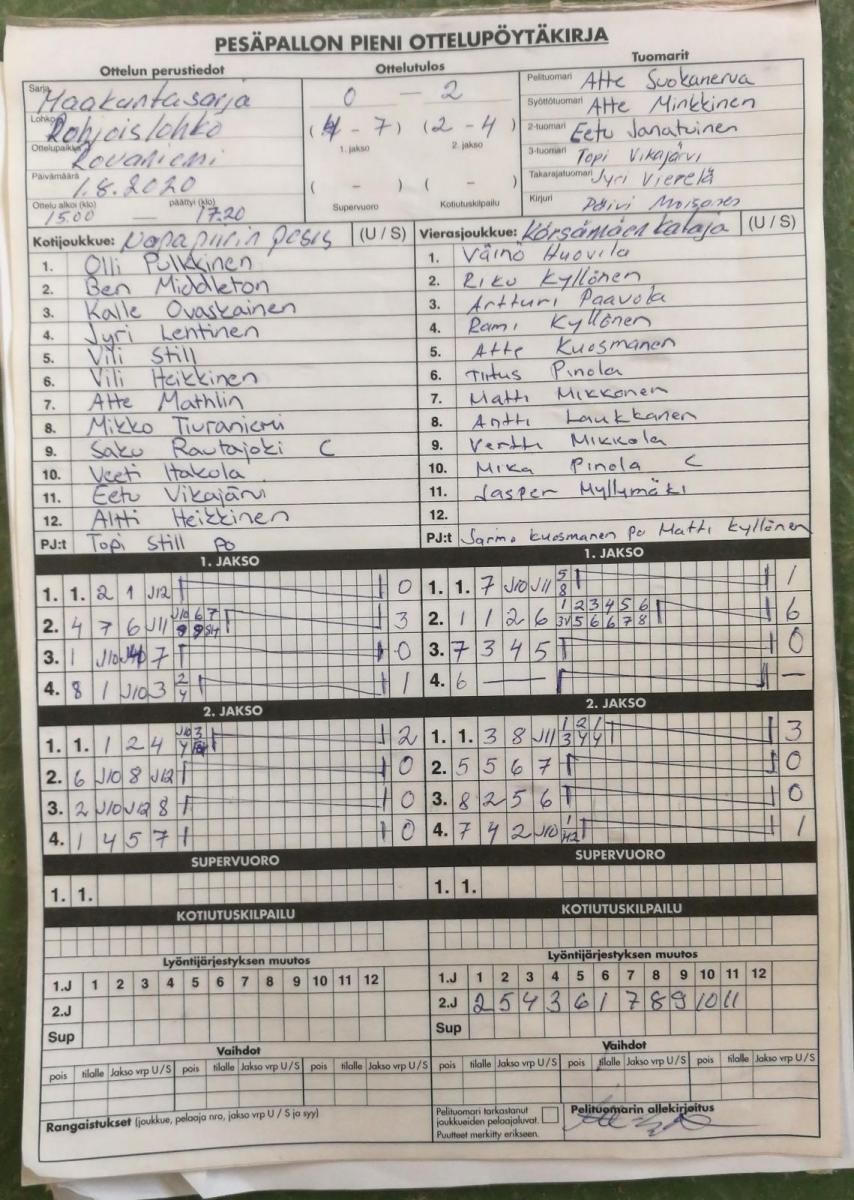 PESÄPALLON PIENI OTTELUPÖYTÄKIRJA
Ottelun perustiedot
Sarja Maakuntasarja
Lohko Pohjoislohko
Ottelupaikka Rovaniemi
Päivämäärä 1.8.2020
Ottelu alkoi (klo) päättyi (klo)
15.00 — 17.20
Ottelutulos
0 — 2
(4 - 7) (2 - 4)
1. jakso 2. jakso
( - ) ( - )
Supervuoro Kotiutuskilpailu
Tuomarit
Pelituomari Atte Suokanerva
Syöttötuomari Atte Minkkinen
2-tuomari Eetu Janatuinen
3-tuomari Topi Vikajärvi
Takarajatuomari Jyri Vierelä
Kirjuri Päivi Moisanen
Kotijoukkue: Napapiirin pesis (U / S)
1. Olli Pulkkinen
2. Ben Middleton
3. Kalle Ovaskainen
4. Jyri Lehtinen
5. Vili Still
6. Vili Heikkinen
7. Atte Mathlin
8. Mikko Tiuraniemi
9. Saku Rautajoki C
10. Veeti Itakola
11. Eetu Vikajärvi
12. Altti Heikkinen
PJ:t Topi Still PO
Vierasjoukkue: Kärsämäen kataja (U / S)
1. Väinö Huovila
2. Riku Kyllönen
3. Artturi Paavola
4. Rami Kyllönen
5. Atte Kuosmanen
6. Tiitus Pinola
7. Matti Mikkonen
8. Antti Laukkanen
9. Vertti Mikkola
10. Mika Pinola C
11. Jasper Myllymäki
12.
PJ:t Jarmo Kuosmanen PO Matti Kyllönen
1. JAKSO
1. 1. 2 1 J12 0
2. 4 7 6 J11 3
3. 1 J10 7 0
4. 8 1 J10 3 2 4 1
2. JAKSO
1. 1. 1 2 4 2
2. 6 J10 8 J12 0
3. 2 J10 J12 8 0
4. 1 4 5 7 0
SUPERVUORO
1. 1.
KOTIUTUSKILPAILU
Lyöntijärjestyksen muutos
1.J 1 2 3 4 5 6 7 8 9 10 11 12
2.J
Sup
Vaihdot
pois tilalle Jakso vrp U / S pois tilalle Jakso vrp U / S pois tilalle Jakso vrp U / S
Rangaistukset (joukkue, pelaaja nro, jakso vrp U / S ja syy)
1. JAKSO
1. 1. 7 J10 J11 5 8 1
2. 1 1 2 6 1 2 3 4 5 6 6
3. 7 3 4 5 0
4. 6 — —
2. JAKSO
1. 1. 3 8 J11 1 2 1 3 4 4 3
2. 5 5 6 7 0
3. 8 2 5 6 0
4. 7 4 2 J10 1
SUPERVUORO
1. 1.
KOTIUTUSKILPAILU
Lyöntijärjestyksen muutos
1.J 1 2 3 4 5 6 7 8 9 10 11 12
2.J 2 5 4 3 6 1 7 8 9 10 11
Sup
Vaihdot
pois tilalle Jakso vrp U / S pois tilalle Jakso vrp U / S pois tilalle Jakso vrp U / S
Pelituomari tarkastanut
joukkueiden pelaajaluvat.
Puutteet merkitty erikseen.
Pelituomarin allekirjoitus